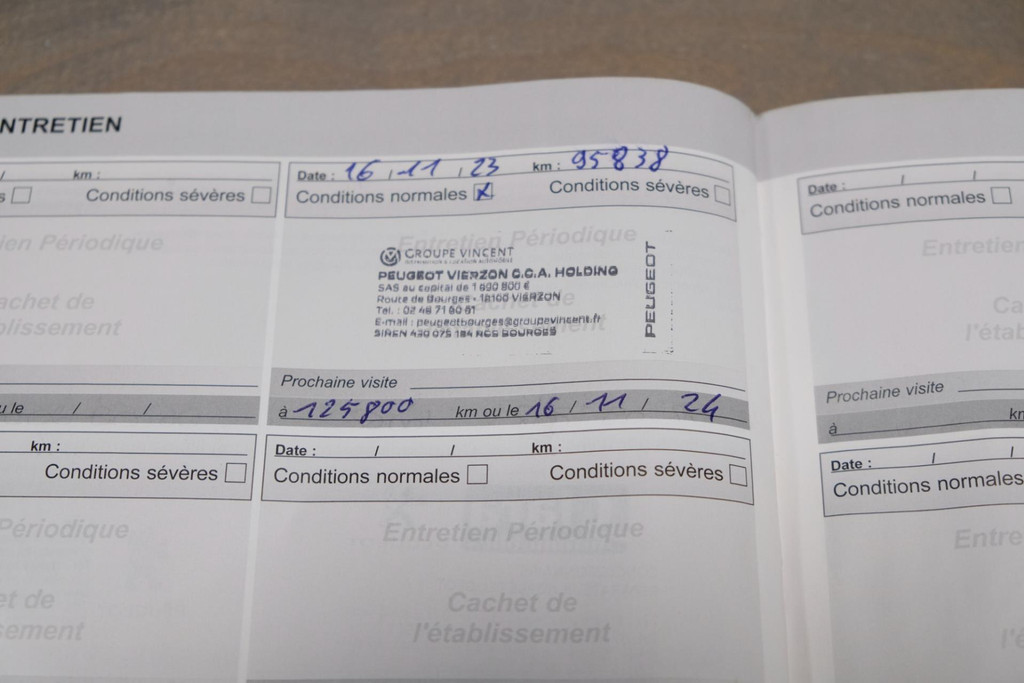 NTRETIEN
/ km :
s Conditions sévères
ien Périodique
achet de
blissement
u le / /
km :
Conditions sévères
Périodique
et de
sement
Date : 16 / 11 / 23 km : 95838
Conditions normales x Conditions sévères
Entretien Périodique
GROUPE VINCENT
PEUGEOT VIERZON C.C.A. HOLDING
SAS au capital de 1 090 800 €
Route de Bourges - 18100 VIERZON
Tel. : 02 48 71 90 61
E-mail : peugeotbourges@groupevincent.fr
SIREN 430 075 184 RCS BOURGES
PEUGEOT
Prochaine visite
à 125800 km ou le 16 / 11 / 24
Date : / / km :
Conditions normales Conditions sévères
Entretien Périodique
Cachet de
l'établissement
Date : / /
Conditions normales
Entretien
Ca
l'étab
Prochaine visite
à km
Date : / /
Conditions normales
Entre
l'é